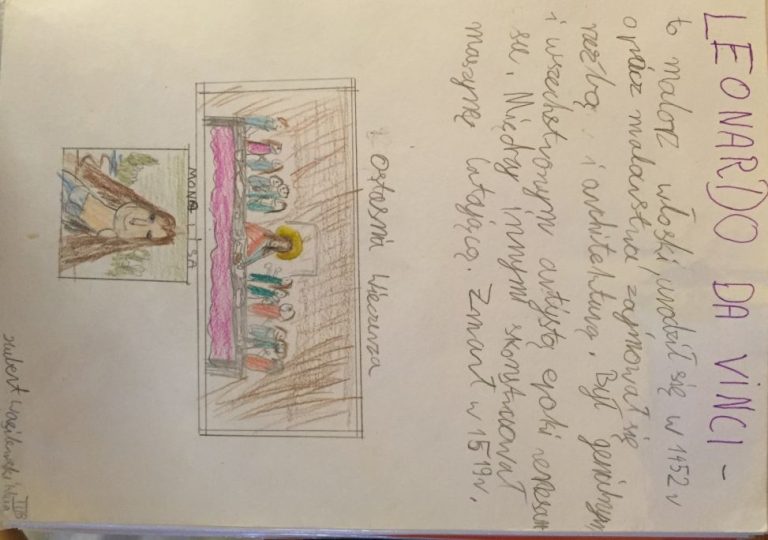 LEONARDO DA VINCI -
to malarz włoski, urodził się w 1452 r
oprócz malarstwa zajmował się
rzeźbą i architekturą. Był genialnym
i wszechstronym artystą epoki renesan
su. Między innymi skonstruował
maszynę latającą. Zmarł w 1519 r.
Ostatnia Wieczerza
MONA LISA
Hubert
III B